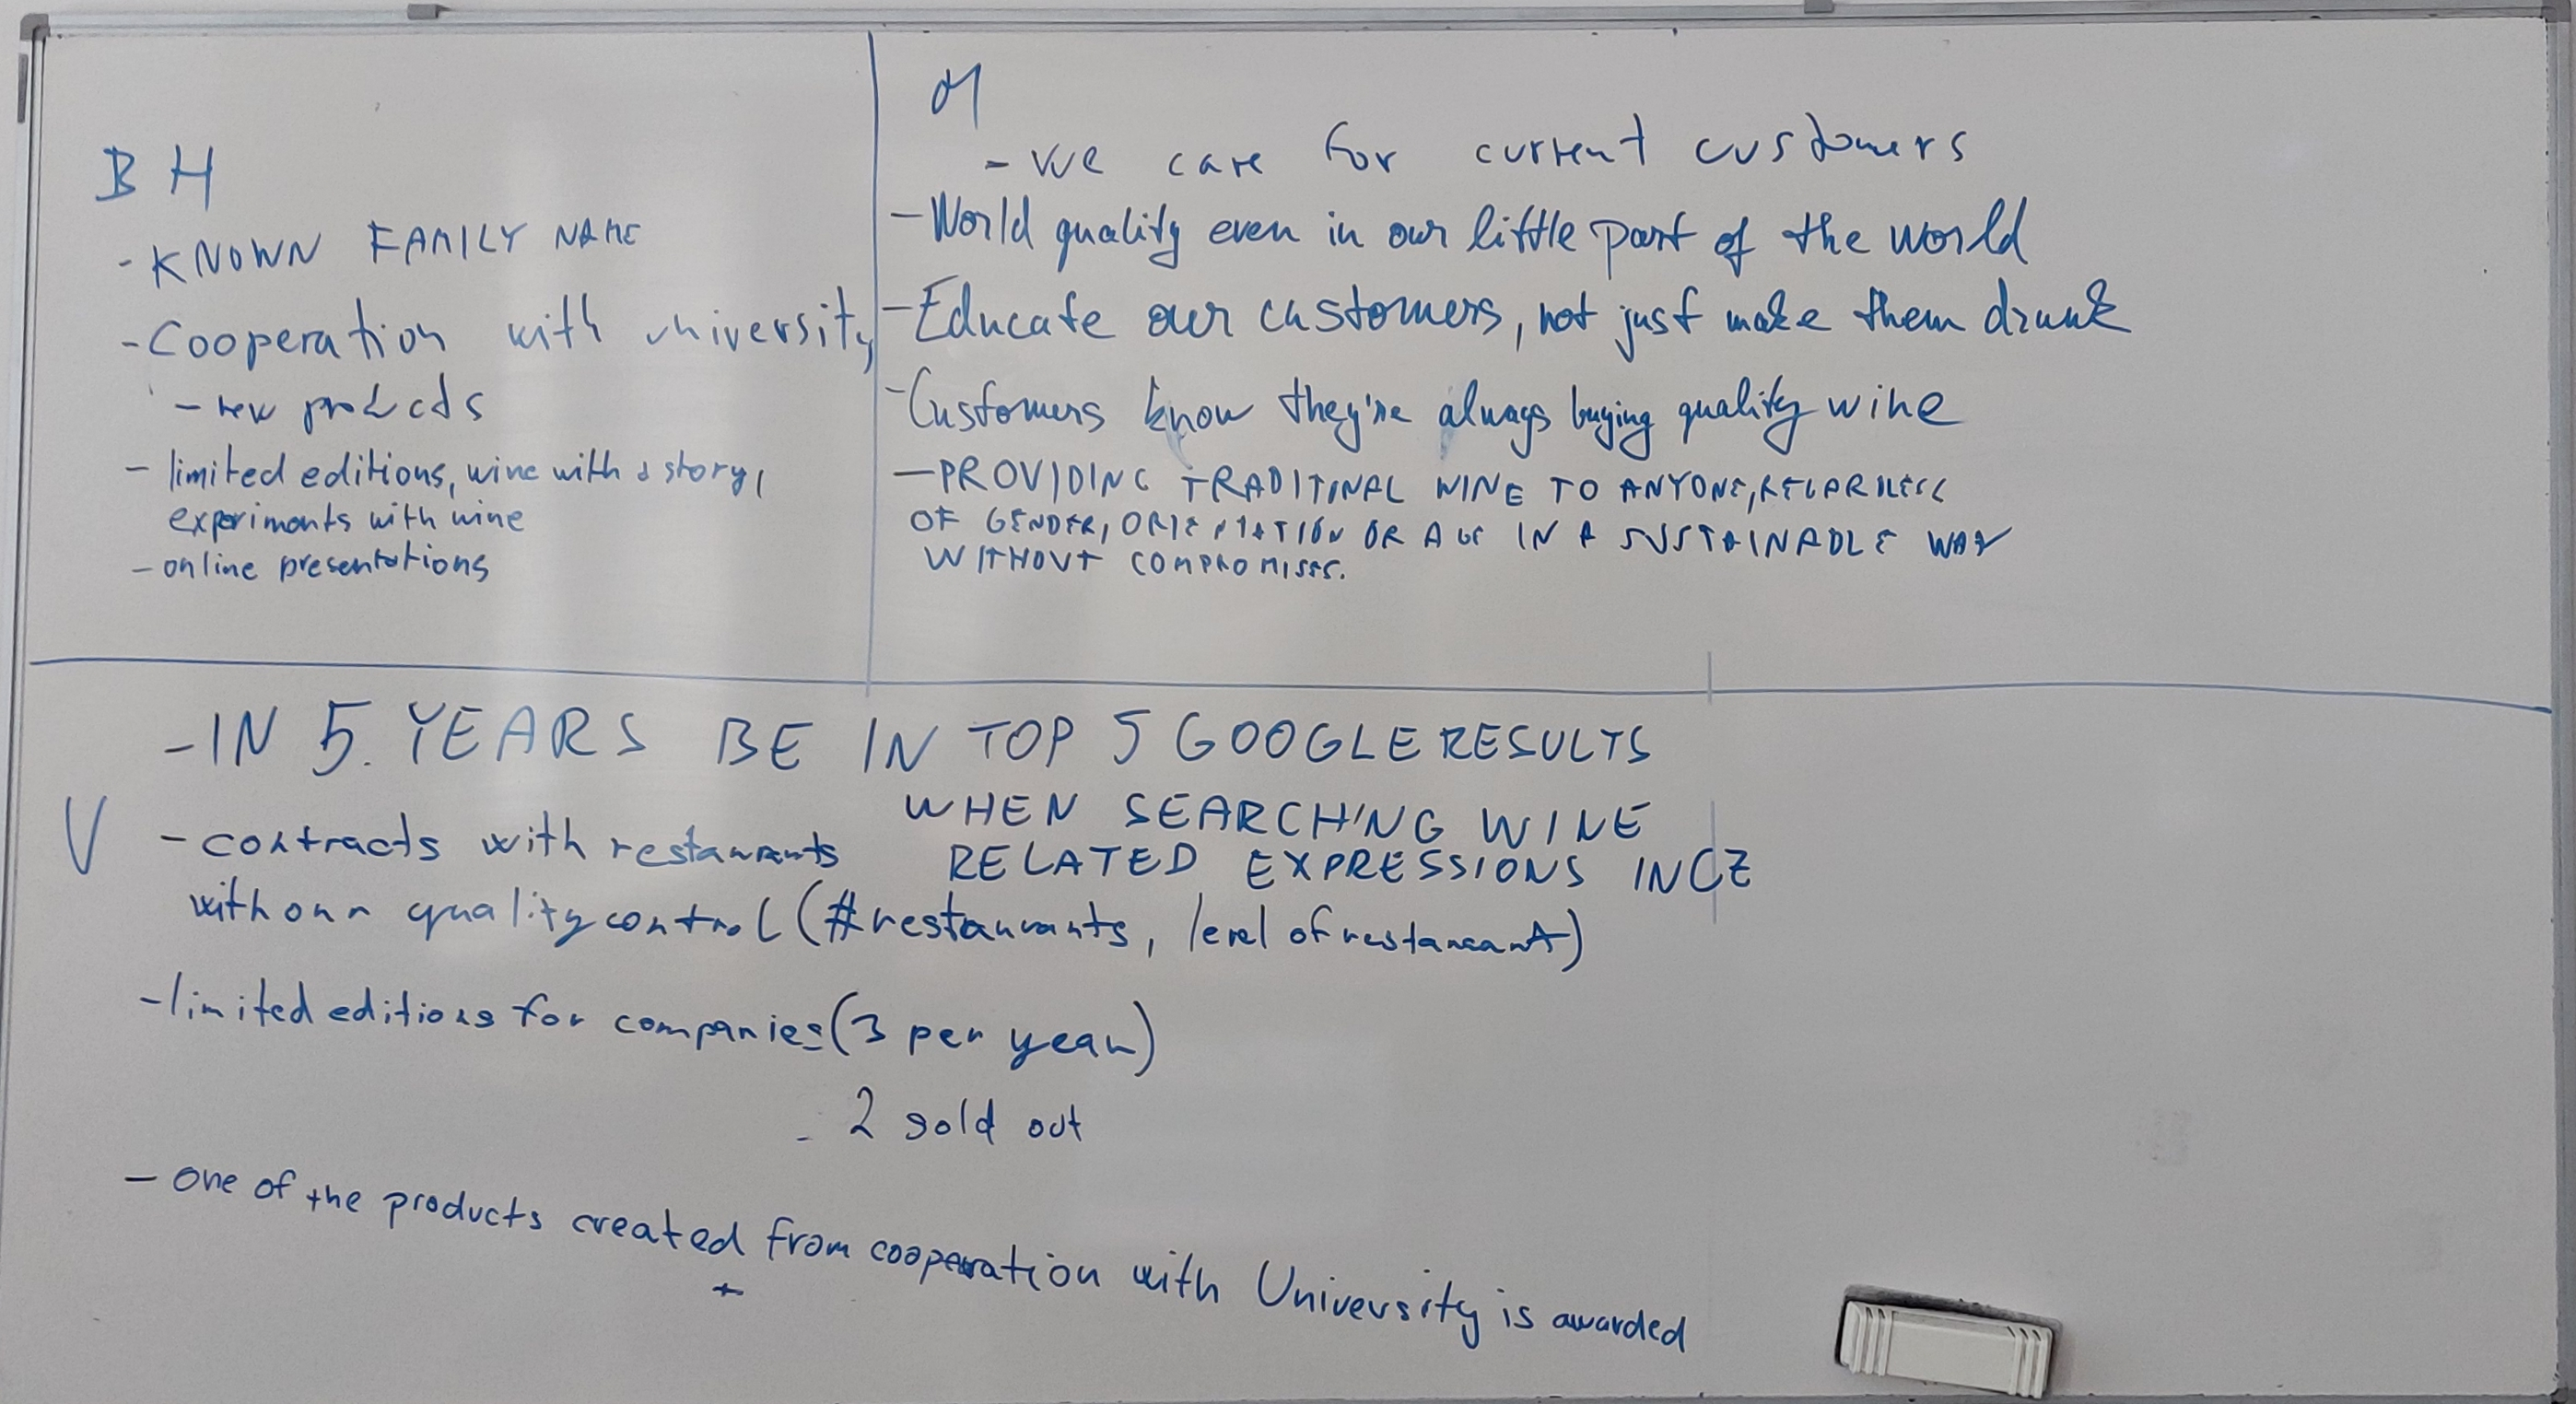 BH
- KNOWN FAMILY NAME
- Cooperation with university
- new products
- limited editions, wine with a story,
experiments with wine
- online presentations
M
- we care for current customers
- World quality even in our little part of the world
- Educate our customers, not just make them drunk
- Customers know they're always buying quality wine
- PROVIDING TRADITINAL WINE TO ANYONE, REGARDLESS
OF GENDER, ORIENTATION OR AGE IN A SUSTAINABLE WAY
WITHOUT COMPROMISES.
V
- IN 5. YEARS BE IN TOP 5 GOOGLE RESULTS
WHEN SEARCHING WINE
RELATED EXPRESSIONS IN CZ
- contracts with restaurants
with our quality control (#restaurants, level of restaurant)
- limited editions for companies (3 per year)
- 2 sold out
- one of the products created from cooperation with University is awarded